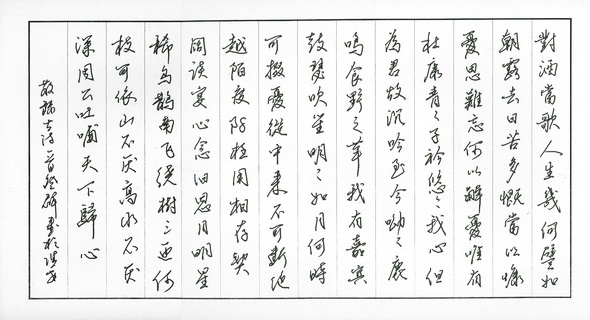 對酒當歌人生幾何譬如
朝露去日苦多慨當以慷
憂思難忘何以解憂唯有
杜康青々子衿悠々我心但
為君故沉吟至今呦々鹿
鳴食野之苹我有嘉賓
鼓瑟吹笙明々如月何時
可掇憂從中來不可斷絕
越陌度阡枉用相存契
闊談宴心念旧恩月明星
稀烏鵲南飞繞樹三匝何
枝可依山不厌高水不厌
深周公吐哺天下歸心
古詩一首書於